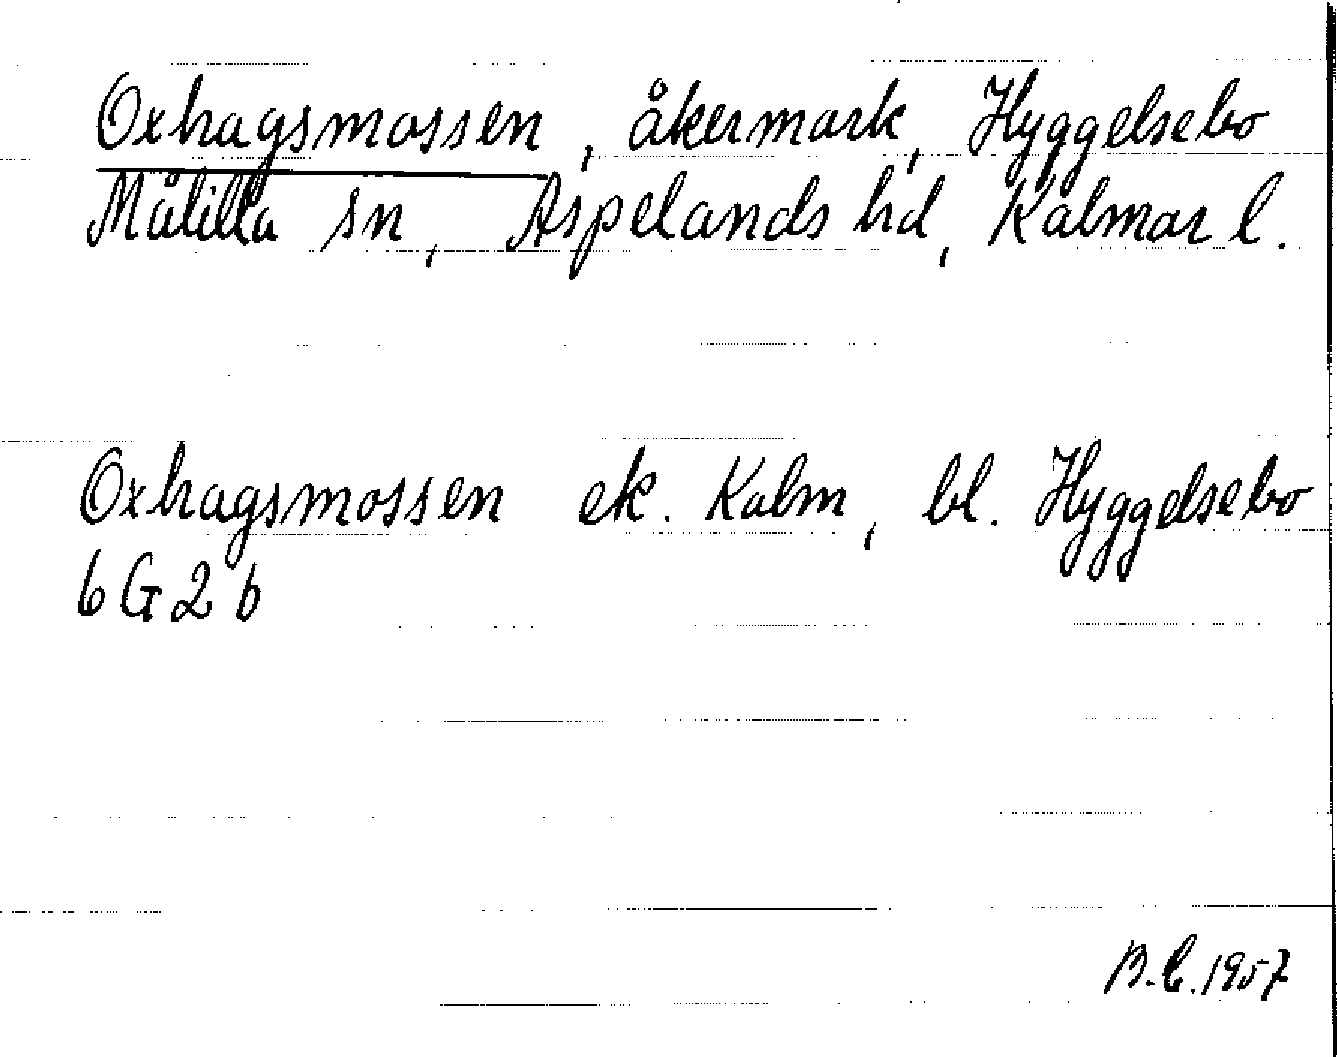 Oxhagsmossen, åkermark, Hyggelsebo
Målilla sn, Aspelands hd, Kalmar l.
Oxhagsmossen ek. Kalm, bl. Hyggelsebo
6 G 2 b
B.C. 1957